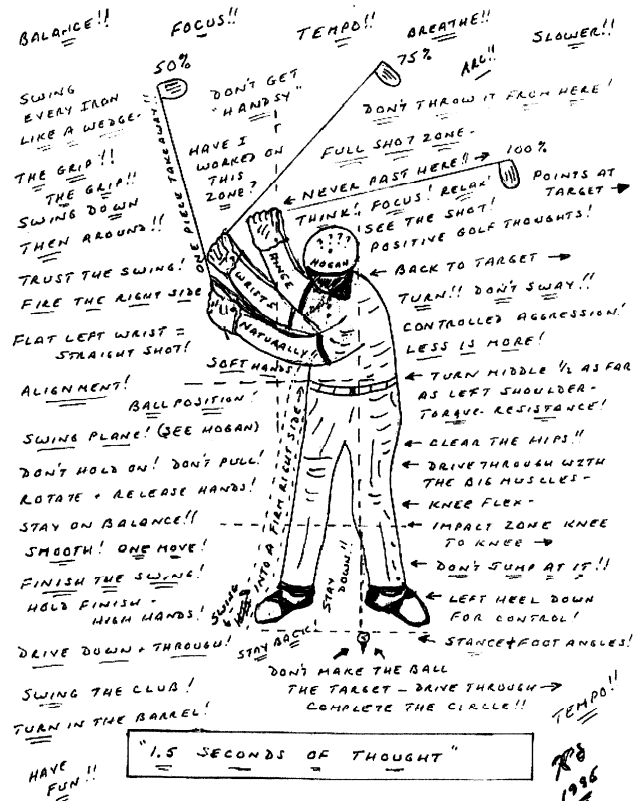 BALANCE!!
FOCUS!!
TEMPO!!
BREATHE!!
SLOWER!!
50%
75%
ARC!!
SWING
EVERY IRON
LIKE A WEDGE-
DON'T GET
"HANDSY"
DON'T THROW IT FROM HERE!
HAVE I
WORKED ON
THIS
ZONE?
FULL SHOT ZONE-
100%
THE GRIP!!
THE GRIP!!
ONE PIECE TAKEAWAY!!
← NEVER PAST HERE!! →
POINTS AT
TARGET →
THINK! FOCUS! RELAX!
SEE THE SHOT!
POSITIVE GOLF THOUGHTS!
SWING DOWN
THEN AROUND!!
????
HOGAN
HINGE
WRISTS
NATURALLY!!
TRUST THE SWING!
FIRE THE RIGHT SIDE
← BACK TO TARGET →
TURN!! DON'T SWAY!!
FLAT LEFT WRIST =
STRAIGHT SHOT!
CONTROLLED AGGRESSION!
LESS IS MORE!
SOFT HANDS!
ALIGNMENT!
BALL POSITION!
← TURN MIDDLE 1/2 AS FAR
AS LEFT SHOULDER-
TORQUE-RESISTANCE!
SWING PLANE! (SEE HOGAN)
← CLEAR THE HIPS!!
DON'T HOLD ON! DON'T PULL!
ROTATE + RELEASE HANDS!
← DRIVE THROUGH WITH
THE BIG MUSCLES-
← KNEE FLEX-
STAY ON BALANCE!!
← IMPACT ZONE KNEE
TO KNEE →
SMOOTH! ONE MOVE!
FINISH THE SWING!
← DON'T JUMP AT IT!!
HOLD FINISH-
HIGH HANDS!
SWING
INTO A FIRM RIGHT SIDE
STAY
DOWN!!
← LEFT HEEL DOWN
FOR CONTROL!
DRIVE DOWN + THROUGH!
STAY BACK!
← STANCE + FOOT ANGLES!
DON'T MAKE THE BALL
THE TARGET - DRIVE THROUGH →
COMPLETE THE CIRCLE!!
SWING THE CLUB!
TURN IN THE BARREL!
TEMPO!!
"1.5 SECONDS OF THOUGHT"
HAVE
FUN!!
1986